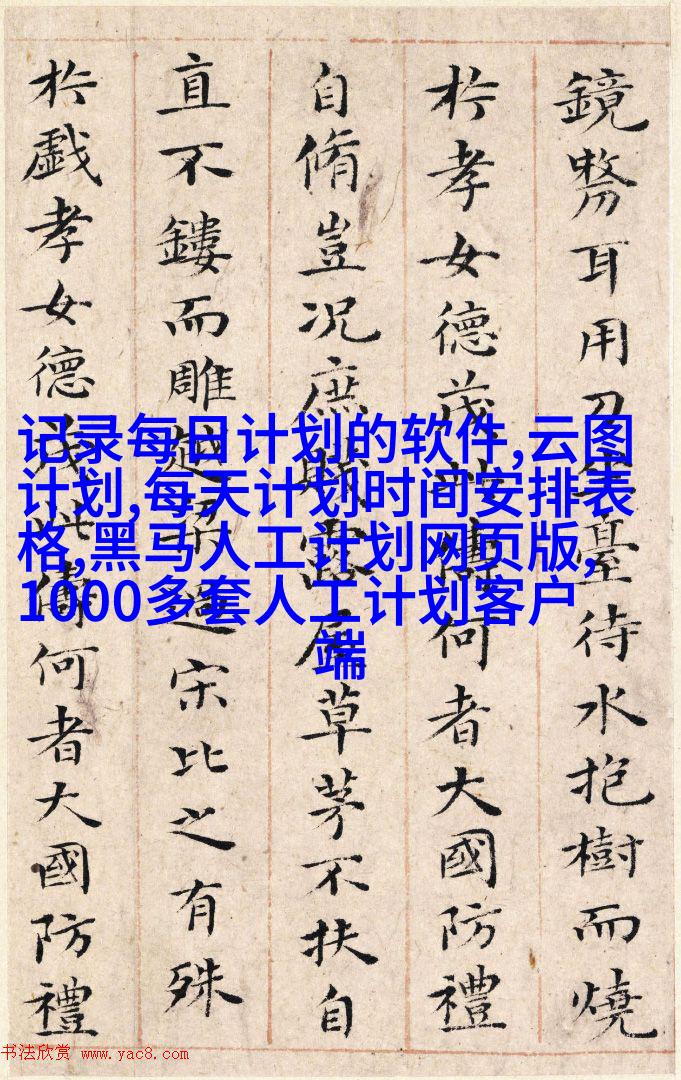 鏡耳用臺待水抱樹而燒
於孝女德茂何者大國防禮
自脩豈况庶賤露屋草茅不扶自
直不鏤而雕越過宋比之有殊
於戲孝女德茂此儔何者大國防禮
记录每日计划的软件,云图
计划,每天计划时间安排表
格,黑马人工计划网页版,
1000多套人工计划客户
端
书法欣赏 www.yac8.com